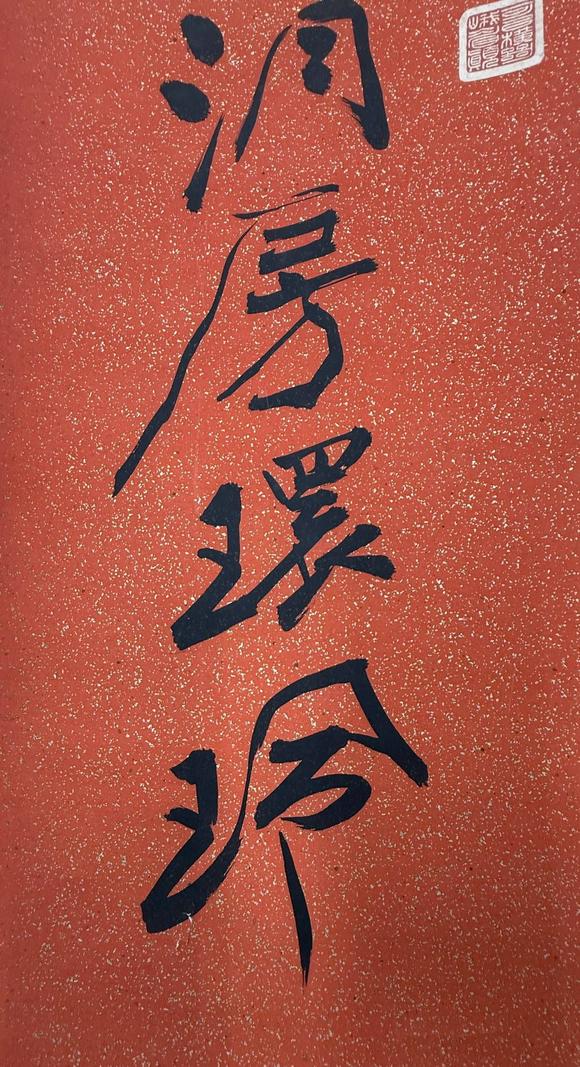 洞房環珮